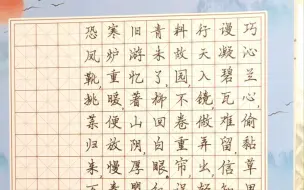 巧沁兰心,偷黏草
谩凝碧瓦难留,信知
行天入镜,做弄出、
料故园,不卷重帘,
青未了,柳回白眼,
旧游忆著山阴,厚
寒炉重暖,便放慢
恐凤靴,挑菜归来,万